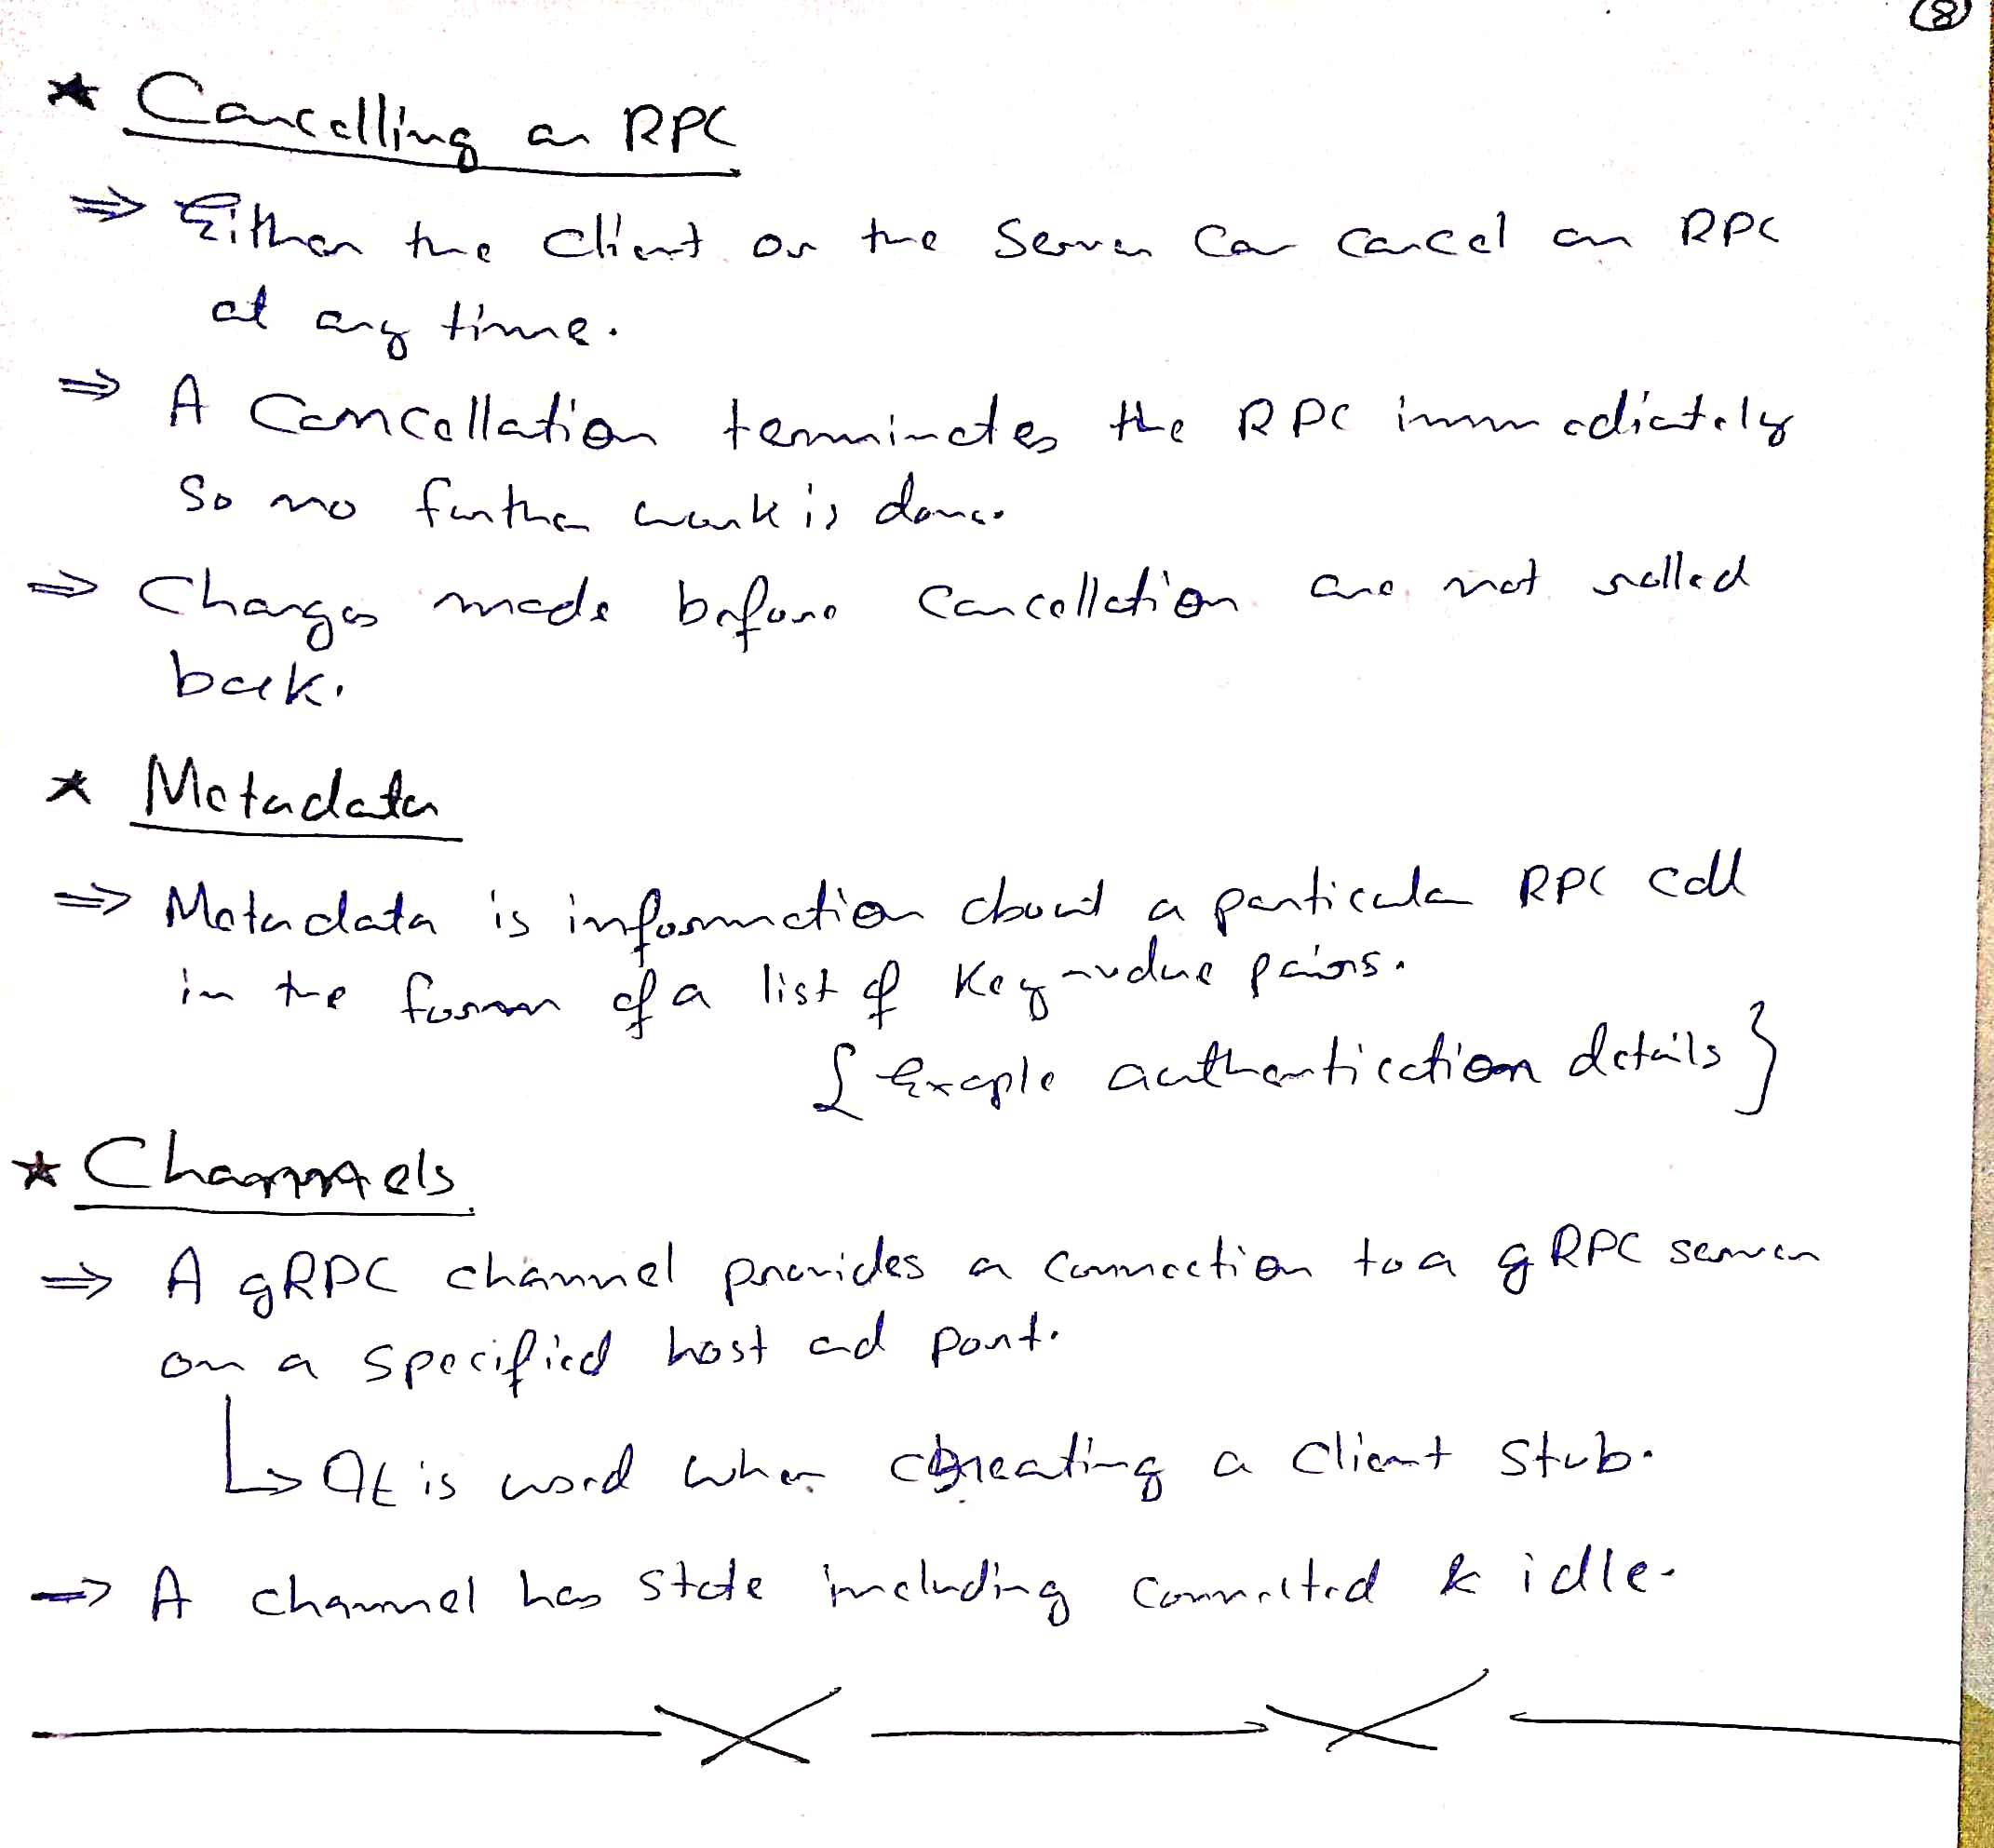 (8)
* Cancelling an RPC
⇒ Either the client or the server can cancel an RPC
at any time.
⇒ A Cancellation terminates the RPC immediately
So no further work is done.
⇒ Changes made before cancellation are not rolled
back.
* Metadata
⇒ Metadata is information about a particular RPC call
in the form of a list of key-value pairs.
{ Exaple authentication details }
* Channels
⇒ A gRPC channel provides a connection to a gRPC server
on a specified host and port.
↳ It is used when creating a client stub.
⇒ A channel has state including connected & idle.